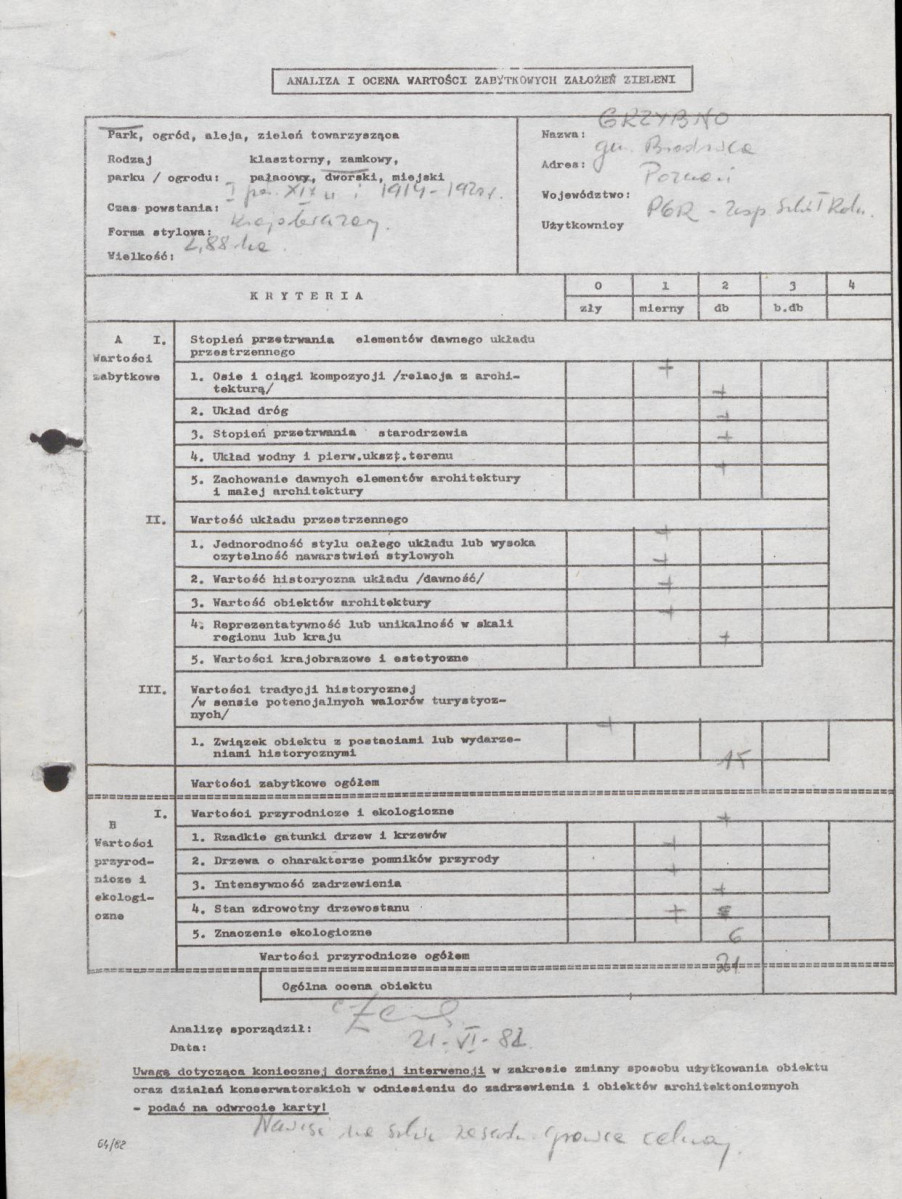 ANALIZA I OCENA WARTOŚCI ZABYTKOWYCH ZAŁOŻEŃ ZIELENI
Park, ogród, aleja, zieleń towarzysząca
Rodzaj klasztorny, zamkowy,
parku / ogrodu: pałacowy, dworski, miejski
Czas powstania: I poł. XIX w i 1914-192
Forma stylowa: Krajobrazowy
Wielkość: 2,88 ha
Nazwa: GRZYBNO
Adres: gm. Brodnica
Województwo: Poznań
Użytkownicy PGR - Zesp. Szkół Roln.
KRYTERIA 0 1 2 3 4
zły mierny db b.db
A I. Stopień przetrwania elementów dawnego układu
przestrzennego
Wartości
zabytkowe
1. Osie i ciągi kompozycji /relacja z archi-
tekturą/ +
2. Układ dróg +
3. Stopień przetrwania starodrzewia +
4. Układ wodny i pierw.ukszt.terenu +
5. Zachowanie dawnych elementów architektury
i małej architektury +
II. Wartość układu przestrzennego
1. Jednorodność stylu całego układu lub wysoka
czytelność nawarstwień stylowych +
2. Wartość historyczna układu /dawność/ +
3. Wartość obiektów architektury +
4. Reprezentatywność lub unikalność w skali
regionu lub kraju +
5. Wartości krajobrazowe i estetyczne +
III. Wartości tradycji historycznej
/w sensie potencjalnych walorów turystycz-
nych/
1. Związek obiektu z postaciami lub wydarze-
niami historycznymi +
Wartości zabytkowe ogółem 15
B I. Wartości przyrodnicze i ekologiczne
Wartości
przyrod-
nicze i
ekologi-
czne
1. Rzadkie gatunki drzew i krzewów +
2. Drzewa o charakterze pomników przyrody +
3. Intensywność zadrzewienia +
4. Stan zdrowotny drzewostanu +
5. Znaczenie ekologiczne +
Wartości przyrodnicze ogółem 6
Ogólna ocena obiektu 21
Analizę sporządził:
Data: 21-VI-82
Uwagę dotyczącą koniecznej doraźnej interwencji w zakresie zmiany sposobu użytkowania obiektu
oraz działań konserwatorskich w odniesieniu do zadrzewienia i obiektów architektonicznych
- podać na odwrocie karty!
64/82